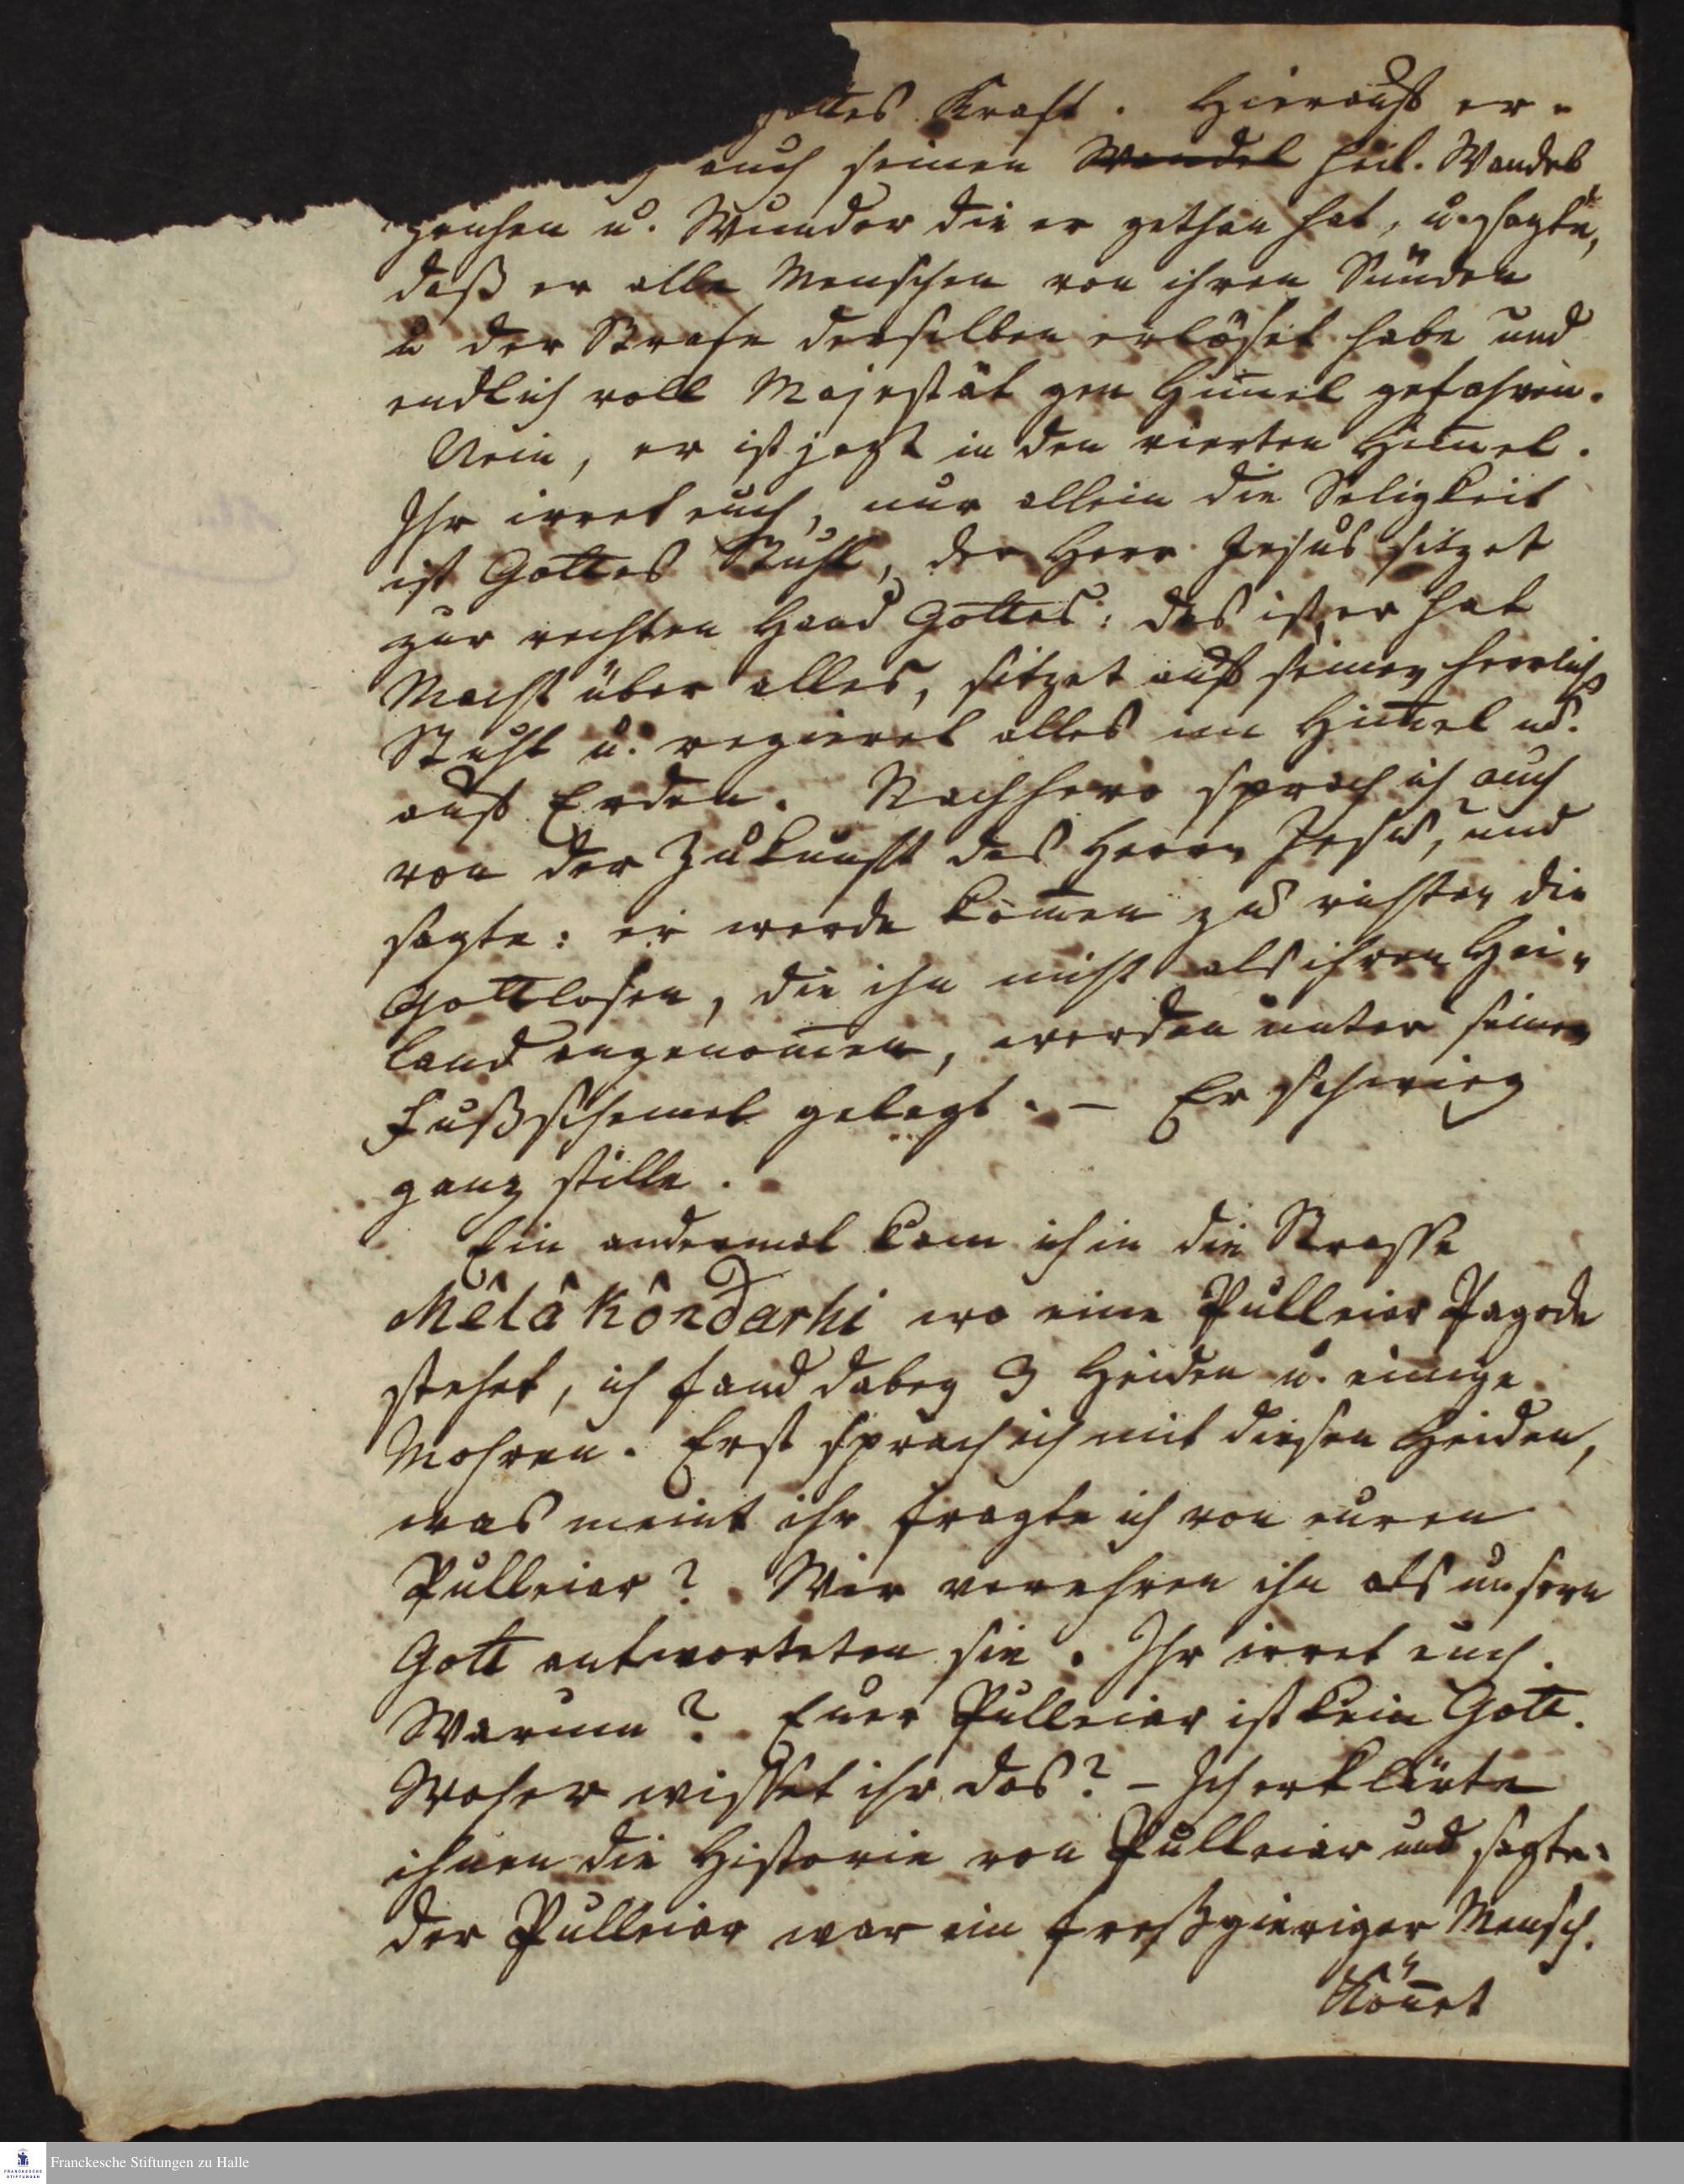 Gottes Kraft. Hierauf er-
auch seinen Wandel heil. Wandel
u. Wunder die er gethan hat, u. sagte,
daß er alle Menschen von ihren Sünden
u der Strafe derselben erlöset habe und
endlich voll Majestät gen Him̅el gefahren.
Nein, er ist jezt in den vierten Him̅el.
Ihr irret euch, nur allein die Seligkeit
ist Gottes Stuhl, der Herr Jesus sitzet
zur rechten Hand Gottes: das ist, er hat
Macht über alles, sitzet auf seinen herrlich
Stuhl u. regieret alles im Him̅el u.
auf Erden. Nachhero sprach ich auch
von der Zukunfft des Herrn Jesus, und
sagte: er werde kom̅en zu richten die
Gottlosen, die ihn nicht als ihren Hei-
land angenom̅en, werden unter seinen
Fußschemel gelegt. – Er schwieg
ganz stille.
Ein andermal kam ich in die Strasse
Mêlâ Kôndarhi wo eine Pulleiar Pagode
stehet, ich fand dabey 3 Heiden u. einige
Mohren. Erst sprach ich mit diesen Heiden,
was meint ihr fragte ich von euren
Pulleiar? Wir verehren ihn als unsern
Gott antworteten sie. Ihr irret euch.
Warum? Euer Pulleiar ist kein Gott.
Woher wisset ihr das? – Ich erklärte
ihnen die Historie von Pulleiar und sagte:
der Pulleiar war ein freßgieriger Mensch.
Kön̅et
Franckesche Stiftungen zu Halle
FRANCKESCHE STIFTUNGEN